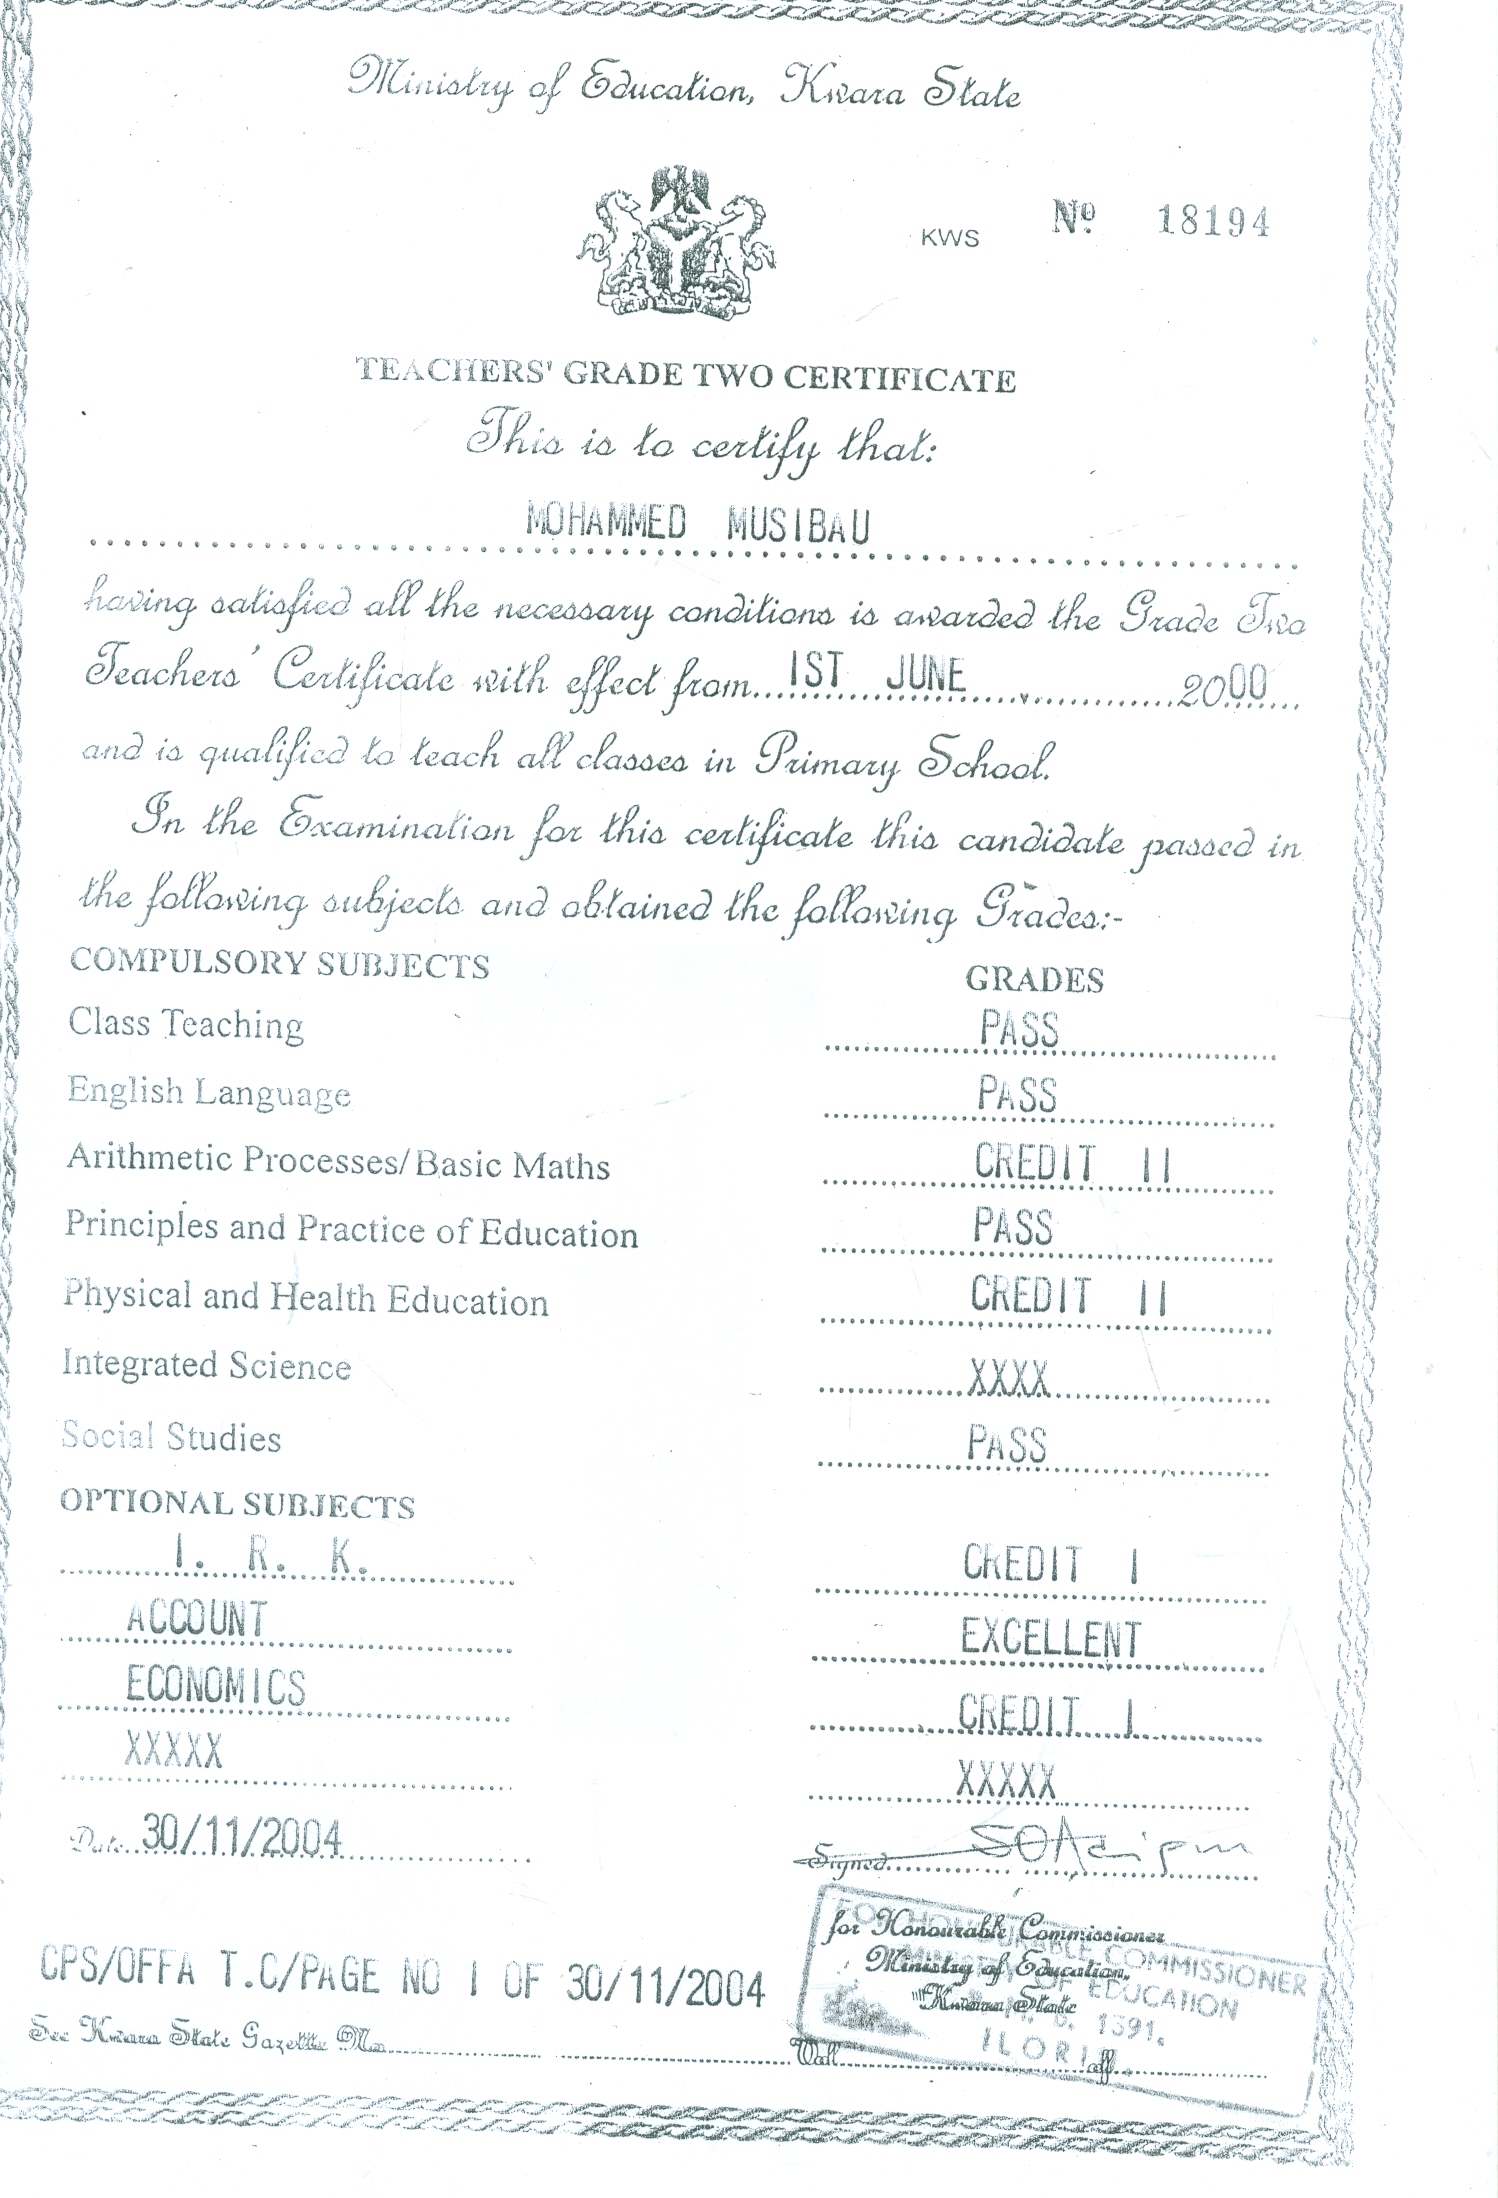 Ministry of Education, Kwara State
KWS Nº 18194
TEACHERS' GRADE TWO CERTIFICATE
This is to certify that:
MOHAMMED MUSIBAU
having satisfied all the necessary conditions is awarded the Grade Two
Teachers' Certificate with effect from 1ST JUNE 2000
and is qualified to teach all classes in Primary School.
In the Examination for this certificate this candidate passed in
the following subjects and obtained the following Grades:-
COMPULSORY SUBJECTS GRADES
Class Teaching PASS
English Language PASS
Arithmetic Processes/Basic Maths CREDIT II
Principles and Practice of Education PASS
Physical and Health Education CREDIT II
Integrated Science XXXX
Social Studies PASS
OPTIONAL SUBJECTS
I. R. K. CREDIT I
ACCOUNT EXCELLENT
ECONOMICS CREDIT I
XXXXX XXXXX
Date 30/11/2004 Signed
for Honourable Commissioner
Ministry of Education,
Kwara State
FOR HONOURABLE COMMISSIONER
MINISTRY OF EDUCATION
1391,
ILORIN
CPS/OFFA T.C/PAGE NO 1 OF 30/11/2004
See Kwara State Gazette No Vol off